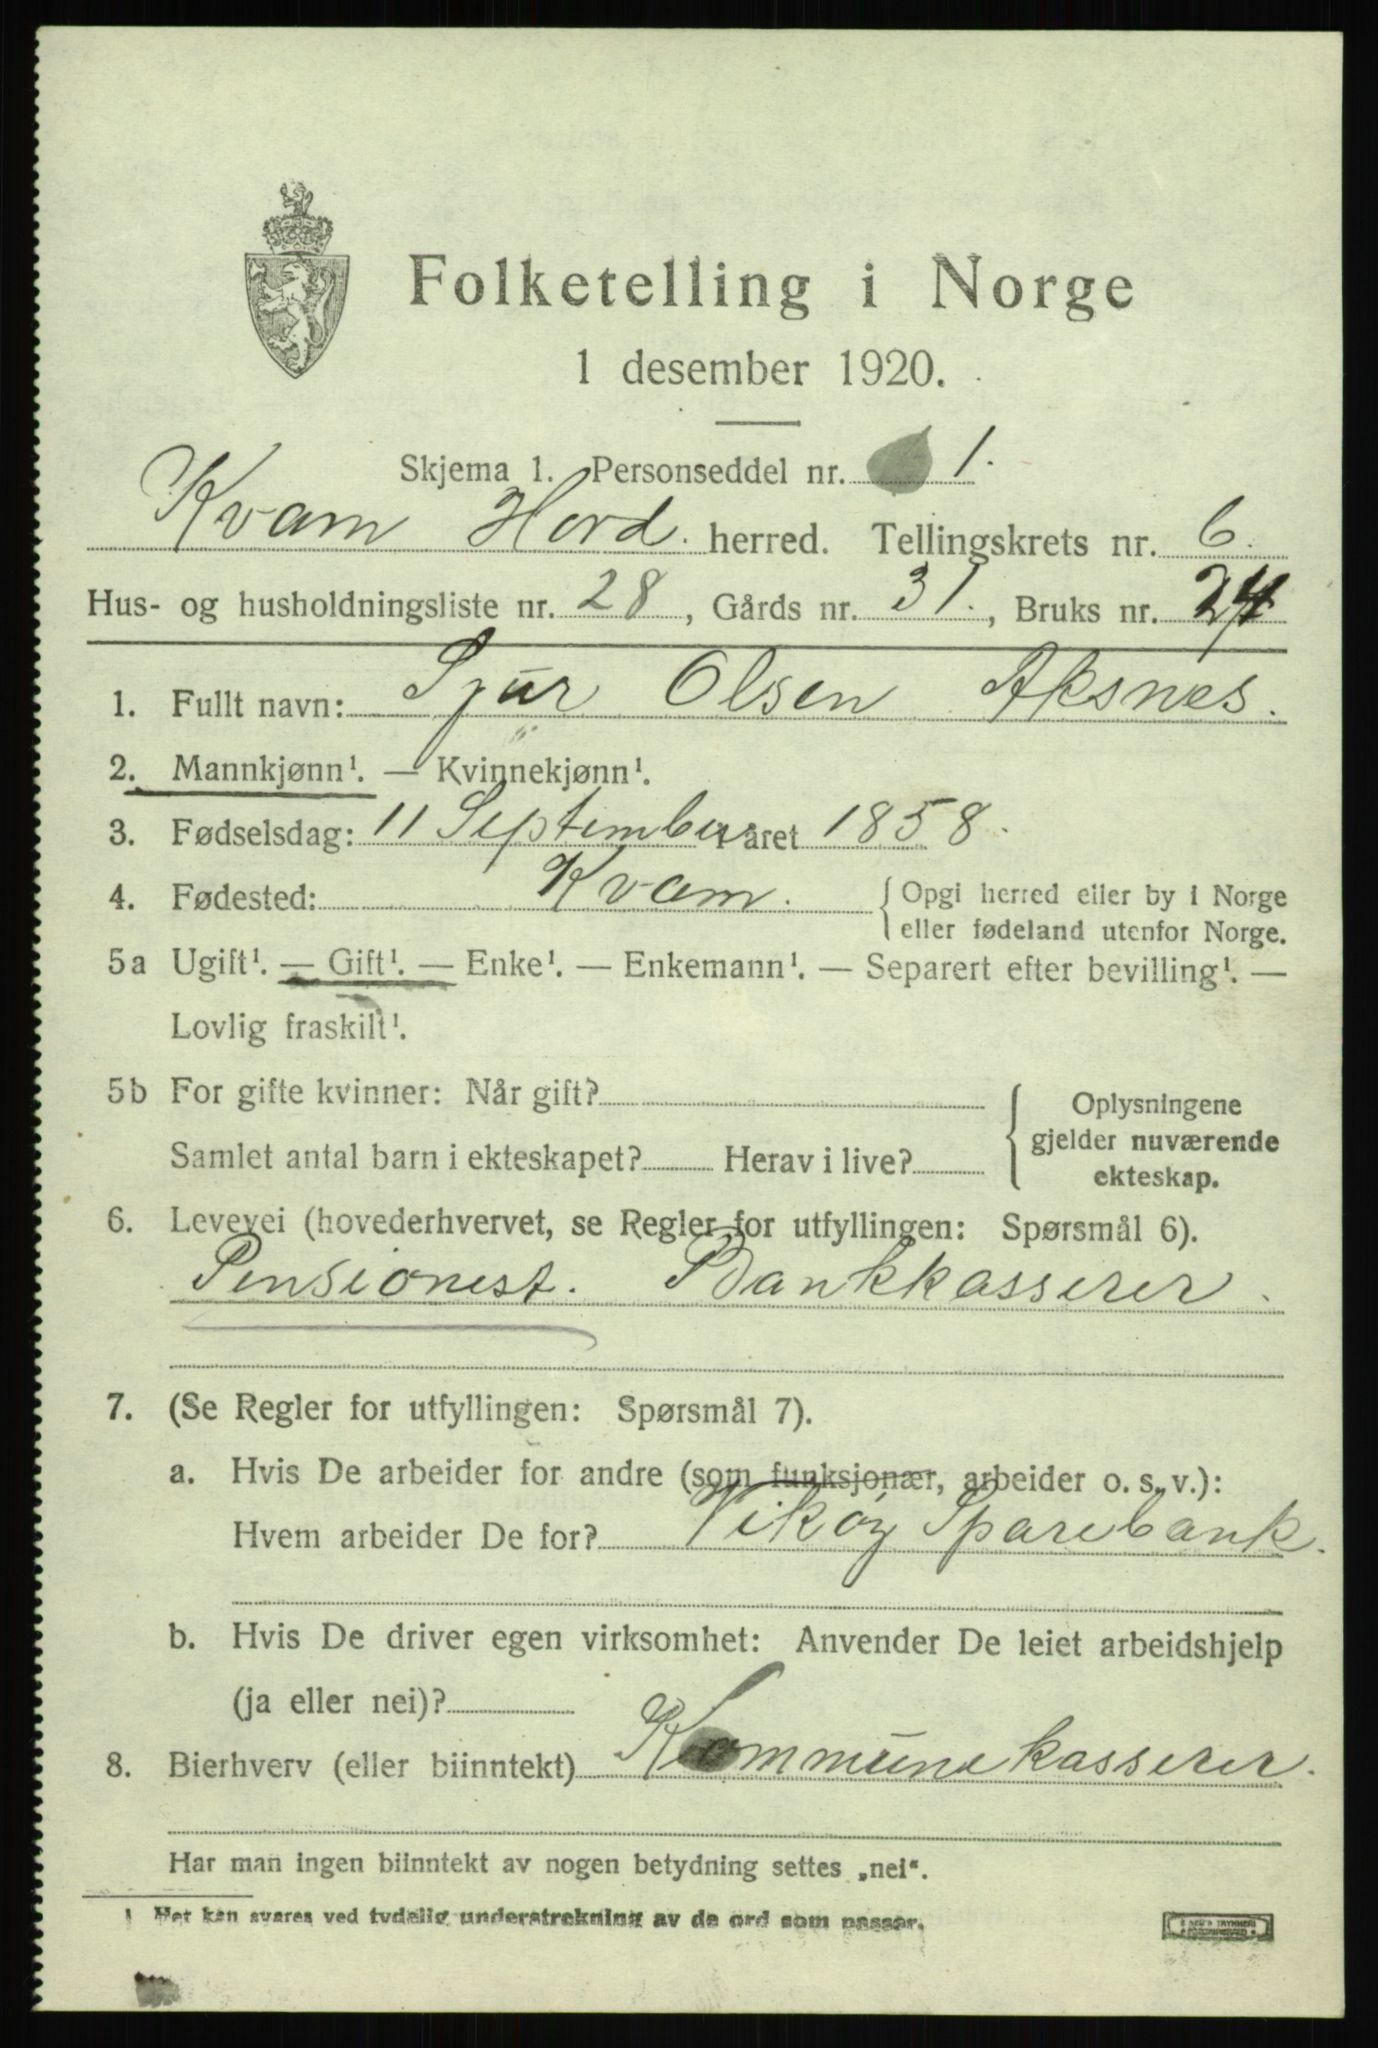 Folketelling i Norge
1 desember 1920.
Skjema 1. Personseddel nr. 1.
Kvam Hord. herred. Tellingskrets nr. 6.
Hus- og husholdningsliste nr. 28, Gårds nr. 31., Bruks nr. 24
1. Fullt navn: Sjur Olsen Aksnes.
2. Mannkjønn¹. — Kvinnekjønn¹.
3. Fødselsdag: 11 September i året 1858.
4. Fødested: Kvam. { Opgi herred eller by i Norge
eller fødeland utenfor Norge.
5a Ugift¹. — Gift¹. — Enke¹. — Enkemann¹. — Separert efter bevilling¹. —
Lovlig fraskilt¹.
5b For gifte kvinner: Når gift?
Samlet antal barn i ekteskapet? Herav i live?
{ Oplysningene
gjelder nuværende
ekteskap.
6. Levevei (hovederhvervet, se Regler for utfyllingen: Spørsmål 6).
Pensionest. Bankkasserer.
7. (Se Regler for utfyllingen: Spørsmål 7).
a. Hvis De arbeider for andre (som funksjonær, arbeider o. s. v.):
Hvem arbeider De for? Vikøy Sparebank.
b. Hvis De driver egen virksomhet: Anvender De leiet arbeidshjelp
(ja eller nei)?
8. Bierhverv (eller biinntekt) Kommunekasserer.
Har man ingen biinntekt av nogen betydning settes „nei“.
1 Her kan svares ved tydelig understrekning av de ord som passer.